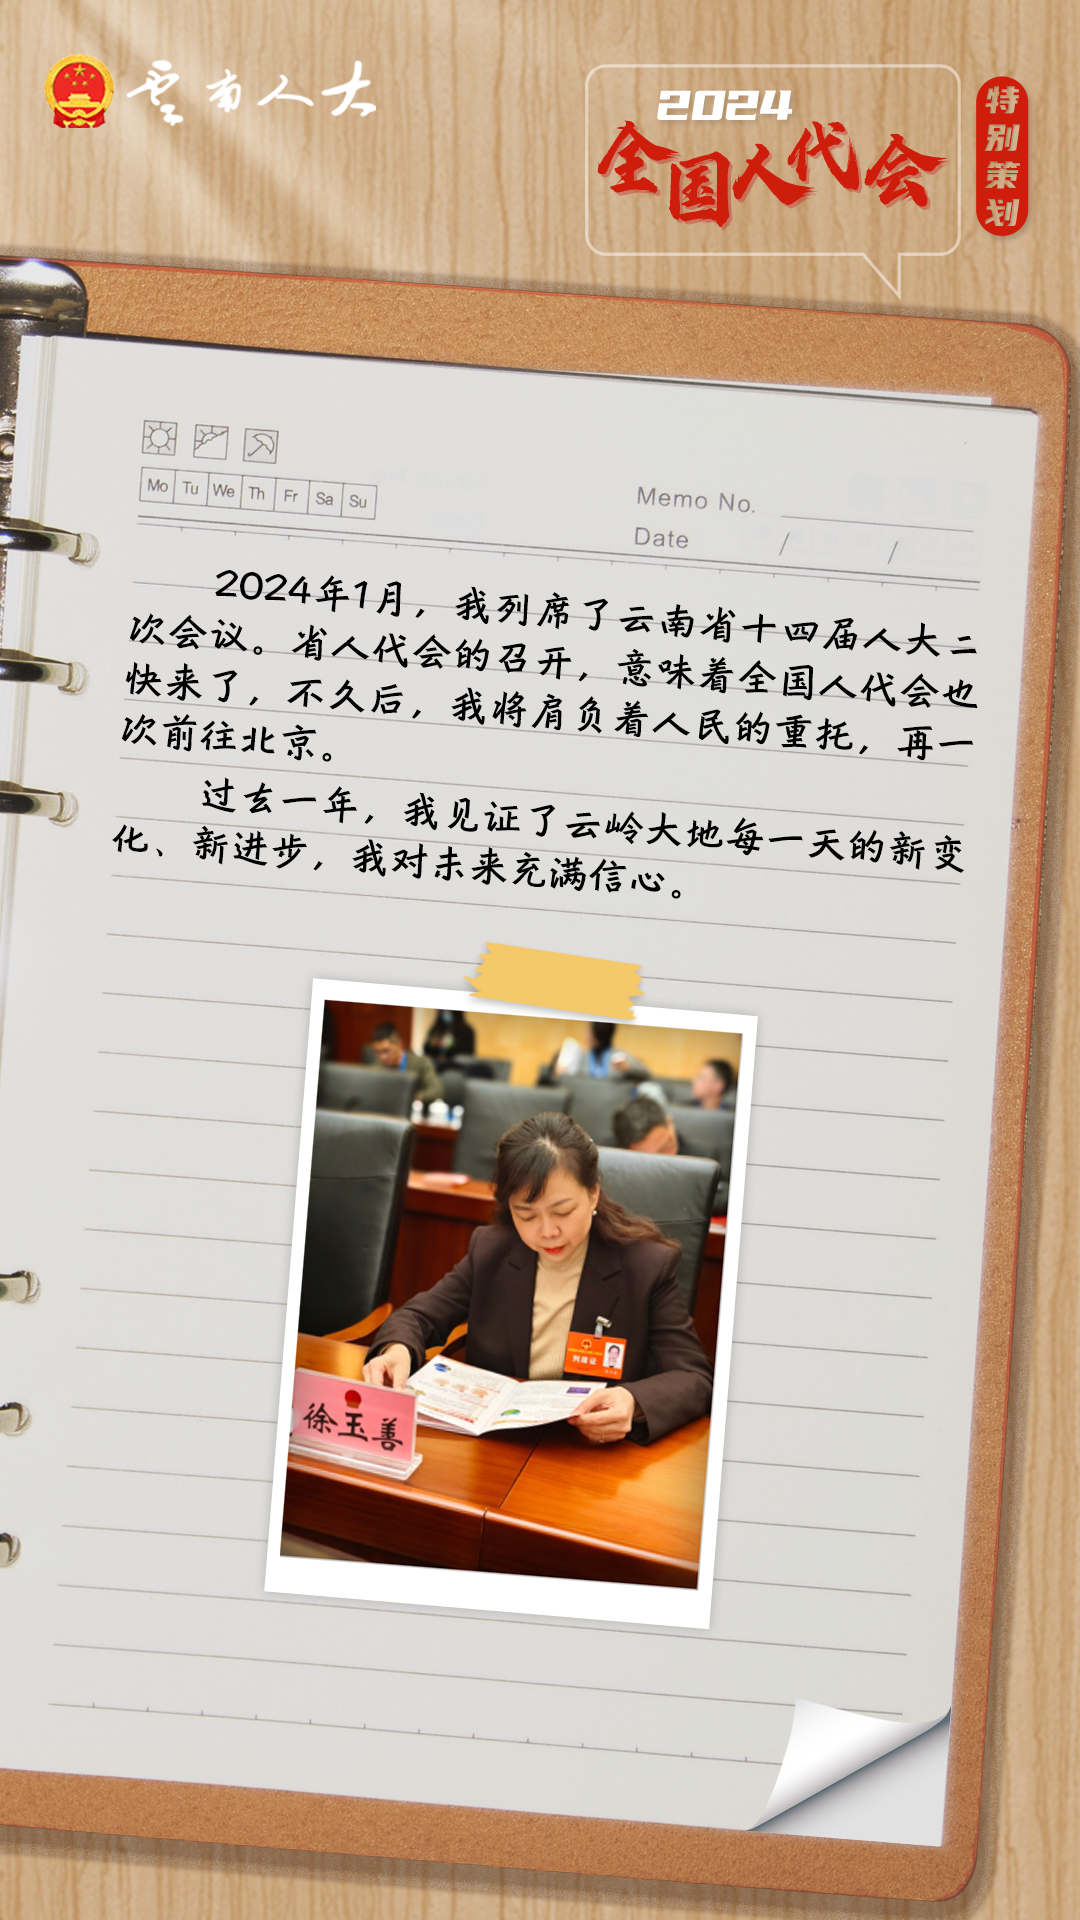 雲南人大
2024
全国人代会
特别策划
Mo Tu We Th Fr Sa Su
Memo No.
Date / /
2024年1月，我列席了云南省十四届人大二
次会议。省人代会的召开，意味着全国人代会也
快来了，不久后，我将肩负着人民的重托，再一
次前往北京。
过去一年，我见证了云岭大地每一天的新变
化、新进步，我对未来充满信心。
列席证
徐玉善